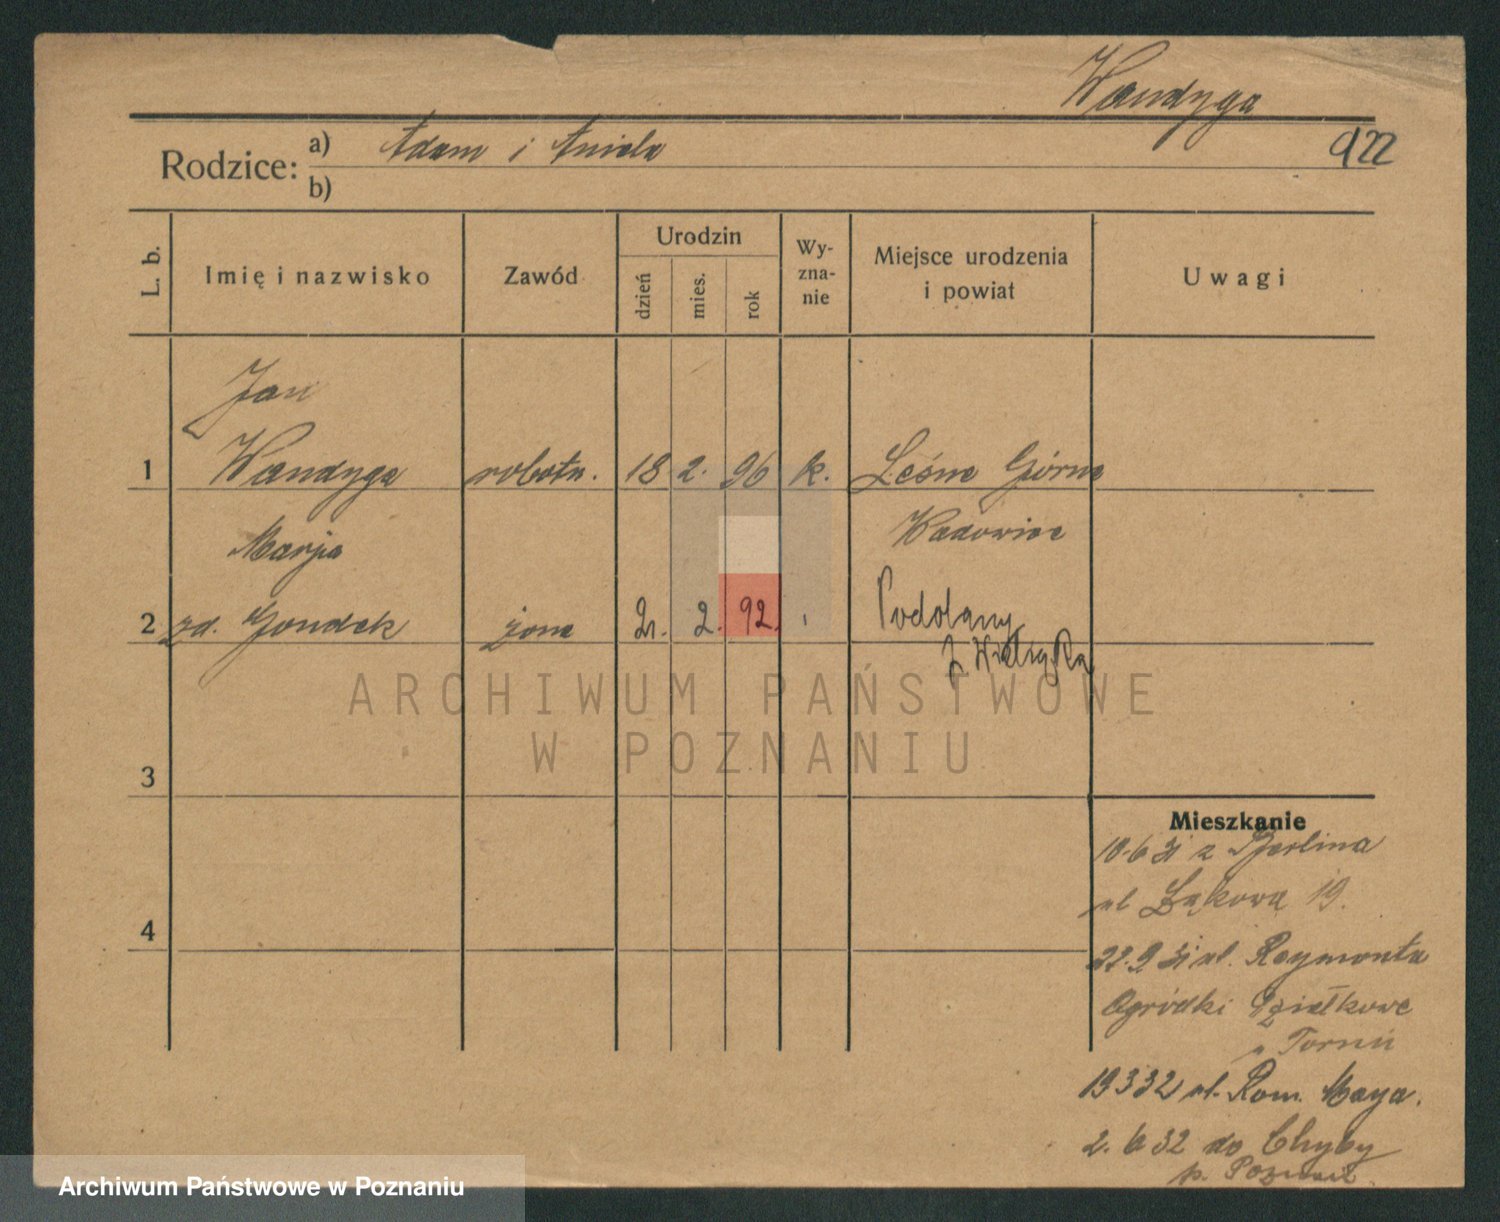 Wandyga
922
Rodzice: a) Adam i Aniela
b)
L. b.
Imię i nazwisko
Zawód
Urodzin
dzień
mies.
rok
Wy-
zna-
nie
Miejsce urodzenia
i powiat
Uwagi
Jan
1 Wandyga robotn. 18 2. 96 k. Leśne Górne
Marja Wadowice
2 zd. Gondek żona 21. 2. 92. Podolany
p. Wieliczka
ARCHIWUM PAŃSTWOWE
W POZNANIU
3
4
Mieszkanie
10.6 31 z Berlina
ul Łąkowa 19.
22.9 31 ul. Reymonta
Ogródki Działkowe
19 3 32 ul. Rom. Maya.
2. 6 32 do Chyby
p. Poznań
Archiwum Państwowe w Poznaniu